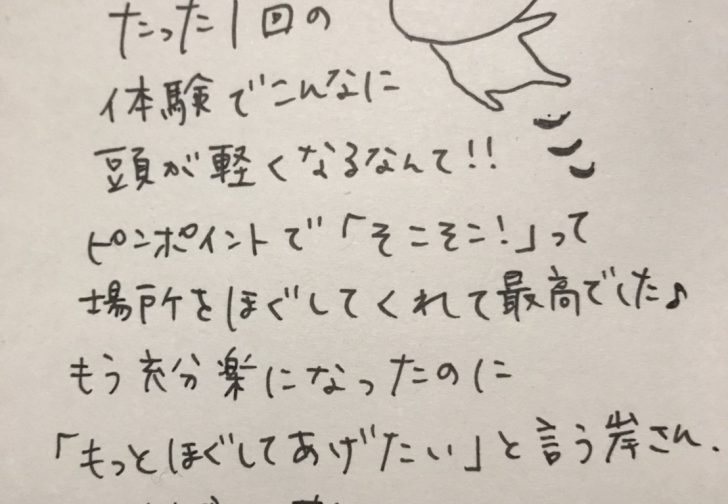 たった1回の
体験でこんなに
頭が軽くなるなんて!!
ピンポイントで「そこそこ!」って
場所をほぐしてくれて最高でした♪
もう充分楽になったのに
「もっとほぐしてあげたい」と言う岸さん.